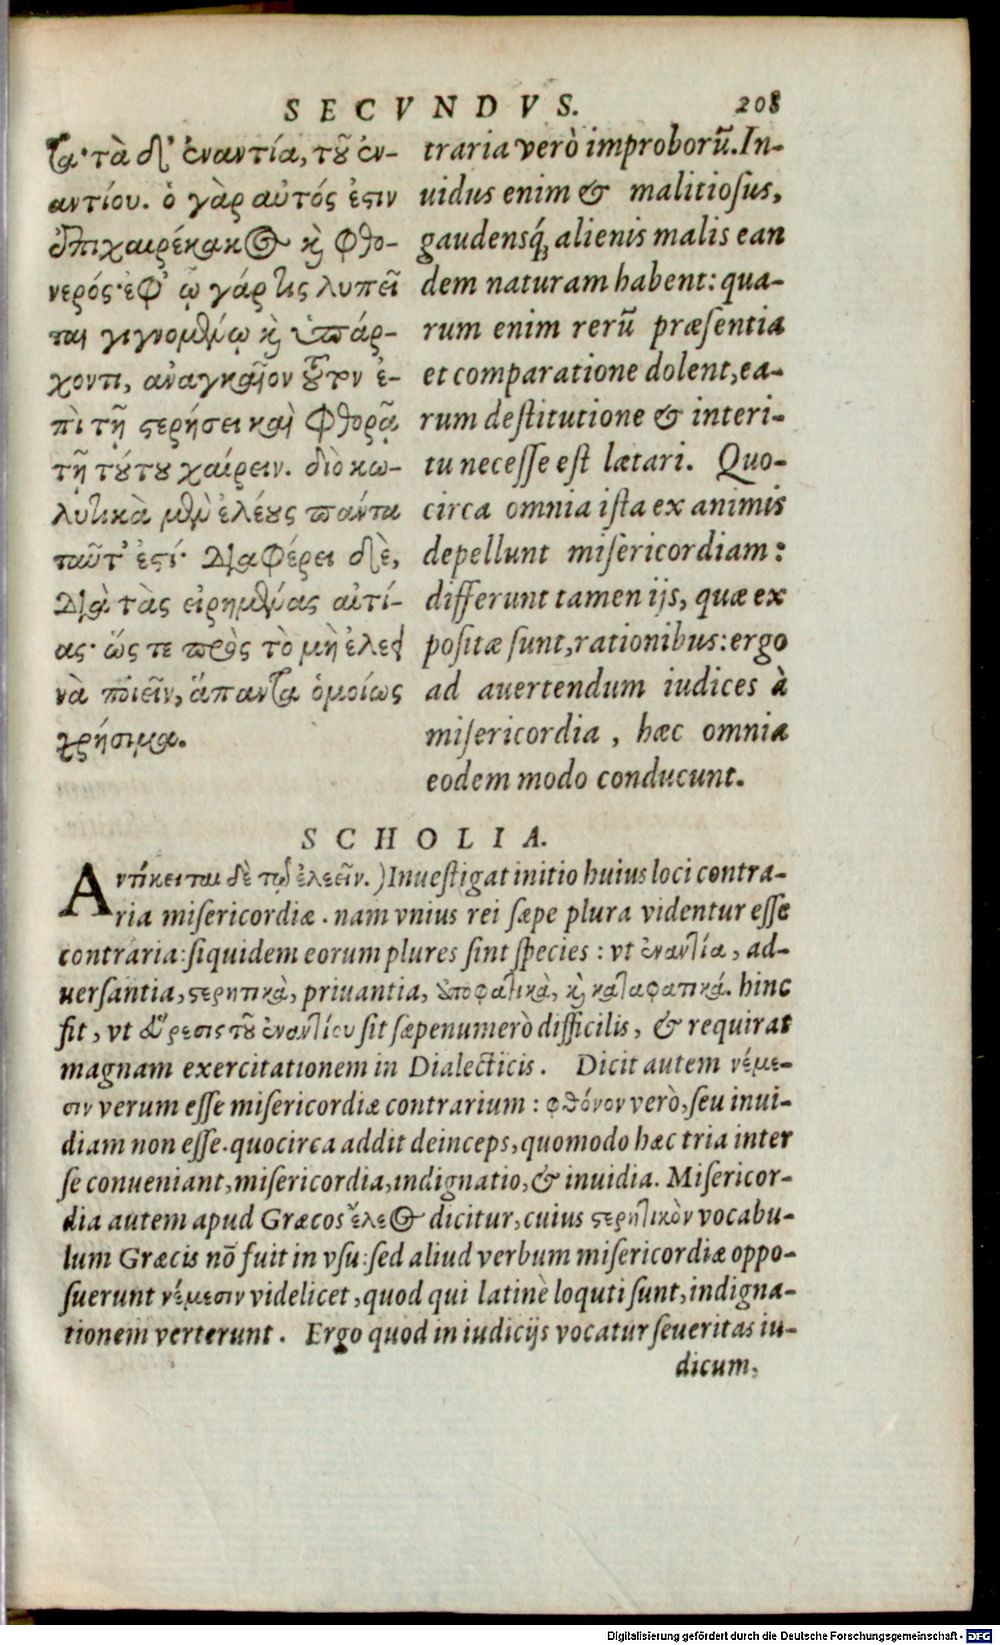 SECVNDVS. 208
τα· τὰ δ' ἐναντία, τοῦ ἐν-
αντίου. ὁ γὰρ αὐτός ἐστιν
ἐπιχαιρέκακος καὶ φθο-
νερός· ἐφ' ᾧ γάρ τις λυπεῖ
ται γιγνομένῳ καὶ ὑπάρ-
χοντι, ἀναγκαῖον τοῦτον ἐ-
πὶ τῇ στερήσει καὶ φθορᾷ
τῇ τούτου χαίρειν. διὸ κω-
λυτικὰ μὲν ἐλέους πάντα
ταῦτ' ἐστί· διαφέρει δὲ,
διὰ τὰς εἰρημένας αἰτί-
ας· ὥς τε πρὸς τὸ μὴ ἐλεει
νὰ ποιεῖν, ἅπαντα ὁμοίως
χρήσιμα.
traria verò improborũ. In-
uidus enim & malitiosus,
gaudensq́; alienis malis ean
dem naturam habent: qua-
rum enim rerũ præsentia
et comparatione dolent, ea-
rum destitutione & interi-
tu necesse est lætari. Quo-
circa omnia ista ex animis
depellunt misericordiam:
differunt tamen ijs, quæ ex
positæ sunt, rationibus: ergo
ad auertendum iudices à
misericordia, hæc omnia
eodem modo conducunt.
SCHOLIA.
Αντίκειται δὲ τῷ ἐλεεῖν.) Inuestigat initio huius loci contra-
ria misericordiæ. nam vnius rei sæpe plura videntur esse
contraria: siquidem eorum plures sint species: vt ἐναντία, ad-
uersantia, στερητικὰ, priuantia, ἀποφατικὰ, καὶ καταφατικά. hinc
fit, vt εὕρεσις τοῦ ἐναντίου sit sæpenumerò difficilis, & requirat
magnam exercitationem in Dialecticis. Dicit autem νέμε-
σιν verum esse misericordiæ contrarium: φθόνον verò, seu inui-
diam non esse. quocirca addit deinceps, quomodo hæc tria inter
se conueniant, misericordia, indignatio, & inuidia. Misericor-
dia autem apud Græcos ἔλεος dicitur, cuius στερητικὸν vocabu-
lum Græcis nõ fuit in vsu: sed aliud verbum misericordiæ oppo-
suerunt νέμεσιν videlicet, quod qui latinè loquti sunt, indigna-
tionem verterunt. Ergo quod in iudicijs vocatur seueritas iu-
dicum,
Digitalisierung gefördert durch die Deutsche Forschungsgemeinschaft - DFG